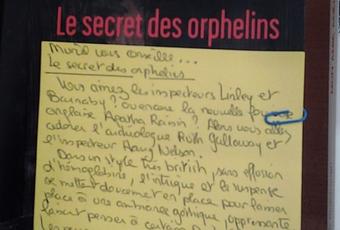 Le secret des orphelins
Muriel vous conseille...
Le secret des orphelins
Vous aimez les inspecteurs Linley et
Barnaby ? ou encore la nouvelle
anglaise Agatha Raisin ? Alors vous allez
adorer l'archéologue Ruth Galloway et
l'inspecteur Harry Nelson.
Dans un style très british, sans effusion
d'hémoglobine, l'intrigue et le suspense
se mettent doucement en place pour laisser
place à une ambiance gothique, oppressante
faisant penser à certains